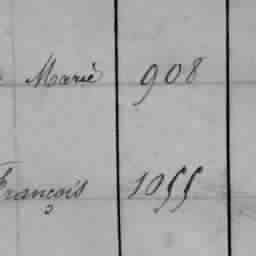 Marie 908
François 1055